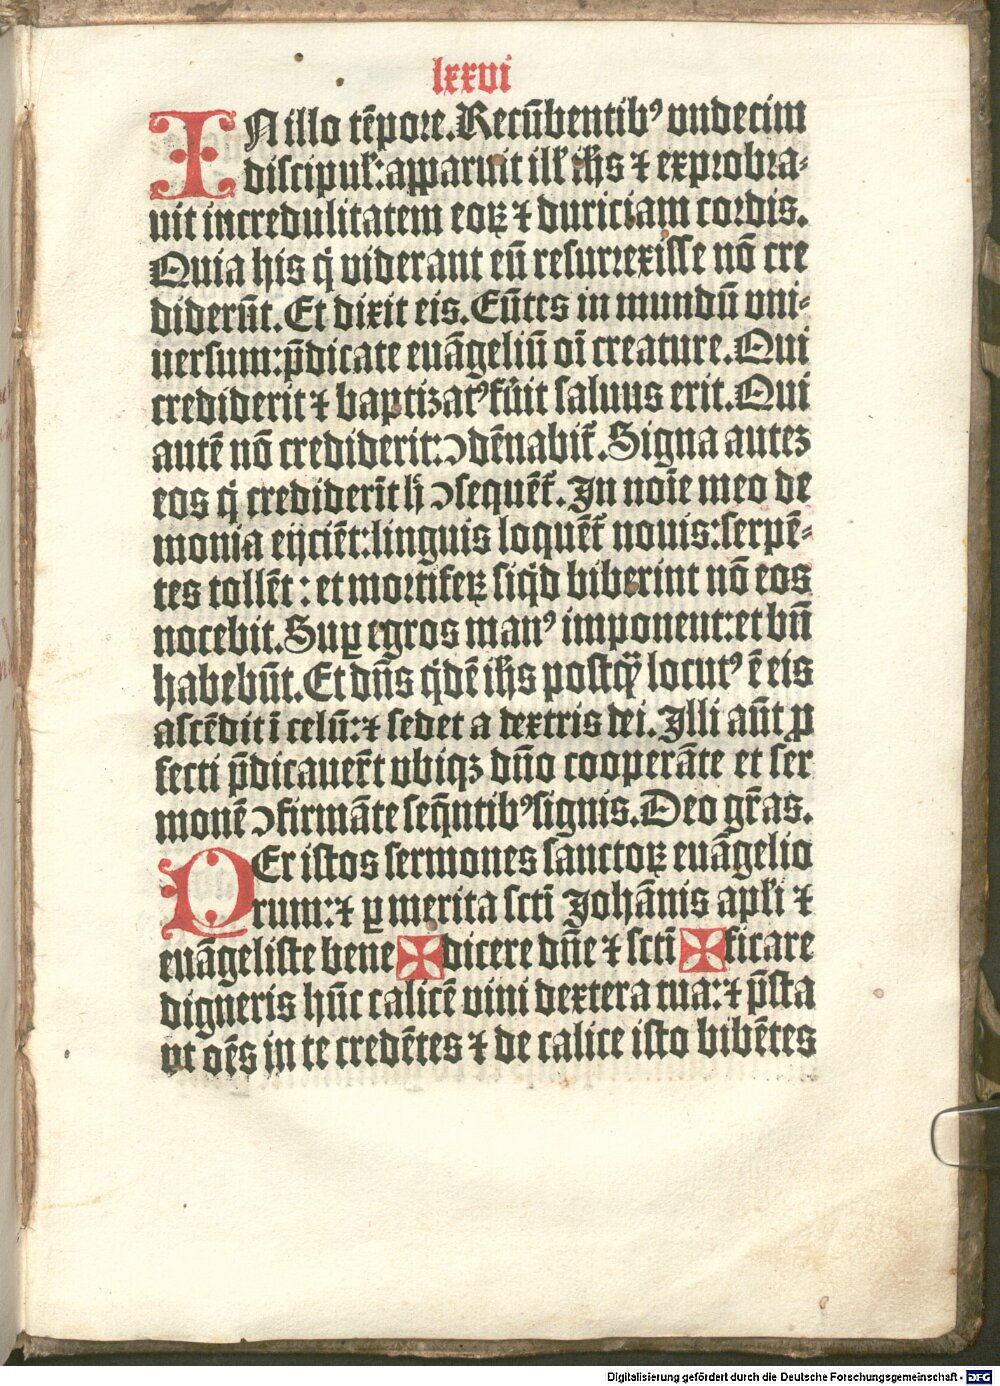 lxxvi
IN illo tēpore. Recūbentib⁹ vndecim
discipul': apparuit ill' ih̄s ⁊ exprobra-
uit incredulitatem eoꝝ ⁊ duriciam cordis.
Quia his q̇ viderant eū resurrexisse nō cre
diderūt. Et dixit eis. Eūtes in mundū vni-
uersum: p̄dicate euāgeliū oī creature. Qui
crediderit ⁊ baptizat⁹ fūit saluus erit. Qui
autē nō crediderit: ↄdēnabit̄. Signa auteꝫ
eos q̇ crediderīt h̄ ↄsequēt̄. In noīe meo de
monia eijciēt: linguis loquēt̄ nouis: serpē-
tes tollēt: et mortiferꝝ siq̇d biberint nō eos
nocebit. Suꝑ egros man⁹ imponent: et bn̄
habebūt. Et dn̄s q̇dē ih̄s postqꝫ locut⁹ ē eis
ascēdit ī celū: ⁊ sedet a dextris dei. Illi aūt ꝓ
fecti p̄dicauer̄t vbiqꝫ dn̄o cooperāte et ser
monē ↄfirmāte seq̄ntib⁹ signis. Deo gr̄as.
PEr istos sermones sanctoꝝ euāgelio
rum: ⁊ ꝑ merita scti Johānis apl'i ⁊
euāgeliste bene ✠ dicere dn̄e ⁊ sctī ✠ ficare
digneris hūc calicē vini dextera tua: ⁊ p̄sta
vt oēs in te credētes ⁊ de calice isto bibētes
Digitalisierung gefördert durch die Deutsche Forschungsgemeinschaft - DFG